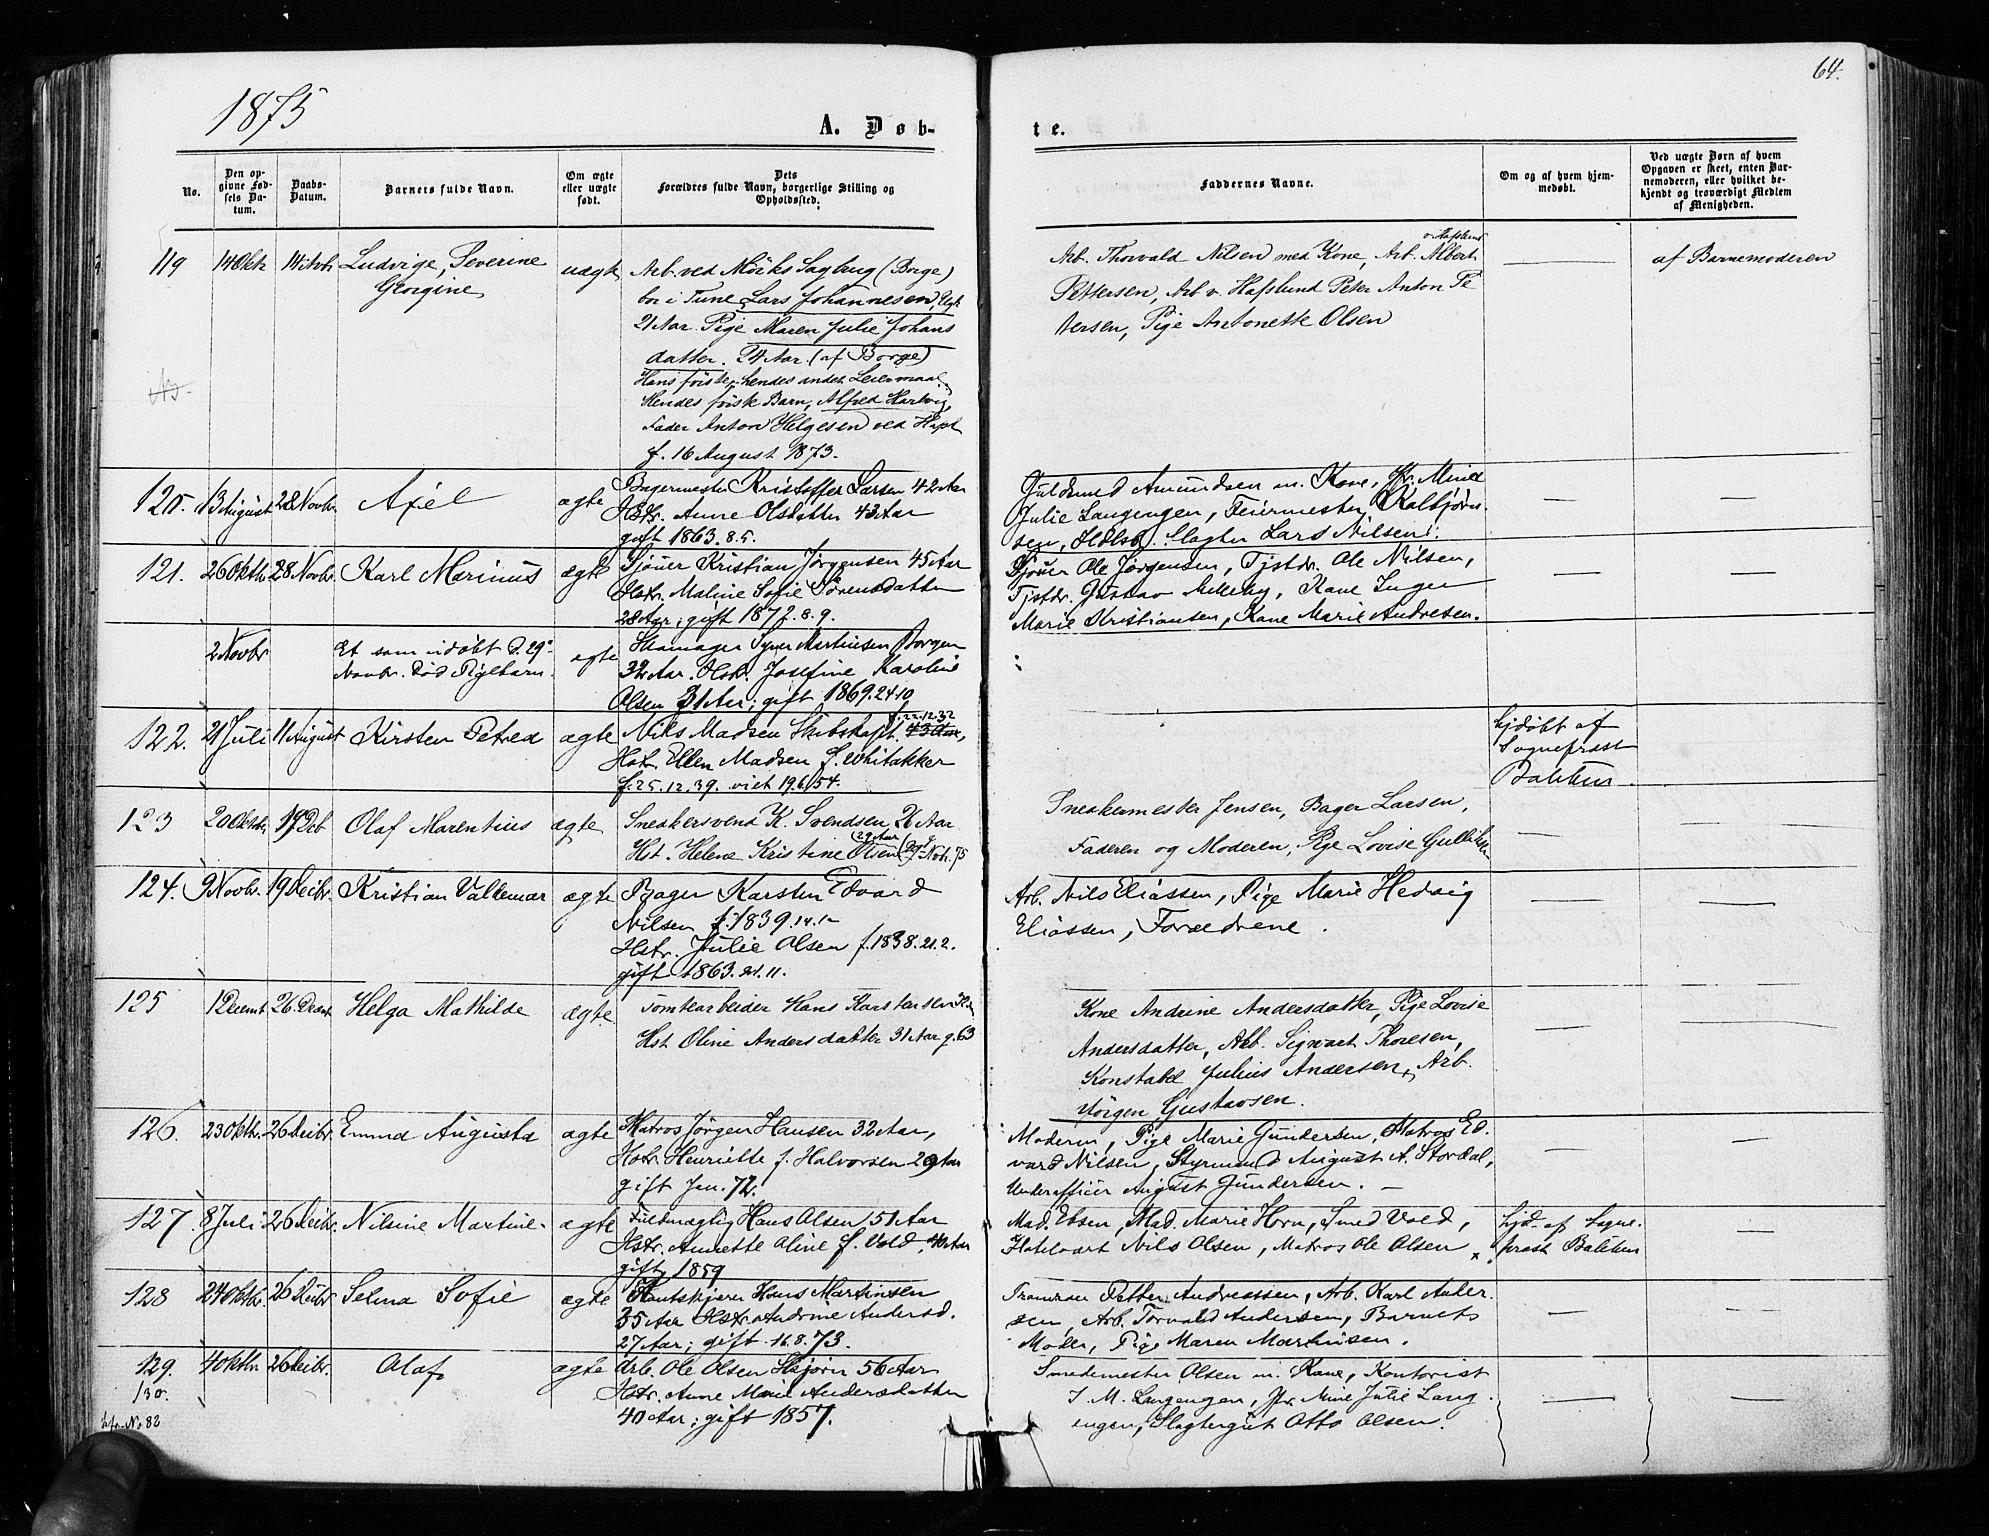 1875
64.
A. Døb-
te.
No.
Den op-
givne Fød-
sels Da-
tum.
Daabs-
Datum.
Barnets fulde Navn.
Om ægte
eller uægte
født.
Dets
Forældres fulde Navn, borgerlige Stilling og
Opholdssted.
Faddernes Navne.
Om og af hvem hjem-
medøbt.
Ved uægte Børn af hvem
Opgaven er skeet, enten Bar-
nemoderen, eller hvilket be-
kjendt og troværdigt Medlem
af Menigheden.
119 14 Oktr 14 Nvbr Ludvige, Severine
Georgine
uægte
Arb. ved Mörks Sagbrug (Borge)
bor i Tune Lars Johannesen,
21 Aar. Pige Maren Julie Johans
datter. 24 Aar (af Borge)
Hans første, hendes andet Leiermaal.
Hendes første Barn, Alfred Hartvig,
Fader Anton Helgesen ved
f. 16 August 1873.
v. Hafslund
Arb. Thorvald Nilsen med Kone, Arb. Albert
Pettersen, Arb v. Hafslund Peter Anton Pe
tersen, Pige Antonette Olsen
af Barnemoderen
120. 13 August 28 Novbr. Axel ægte
Bagermester Kristoffer Larsen 42 Aar
Hstr. Anne Olsdatter 43 Aar
gift 1863. 8.5.
Guldsmed Amundsen m. Kone, Jfr. Mine
Julie Langengen, Feiermester Kalbjørn-
sen, Hdlsb. Slagter Lars Nilsen.
121. 26 Oktbr. 28 Novbr. Karl Marinus ægte
Sjouer Kristian Jørgensen 45 Aar
Hstr. Maline Sofie Sørensdatter
28 Aar; gift 1872. 8. 9.
Sjouer Ole Jørgensen, Tjstdr. Ole Nilsen,
Tjstdr. Gustav Melleby, Kone Inger
Marie Kristiansen, Kone Marie Andresen.
2 Novbr Et som udøbt d. 29de
Novbr. død Pigebarn. ægte
Skomager Syver Martinsen Borgen
32 Aar. Hstr. Josefine Karoline
Olsen 31 Aar; gift 1869. 24.10
122. 21 Juli 11 August Kirsten Petrea ægte
f. 22.12.32
Nils Madsen Skibskapt. 43 Aar,
Hstr. Ellen Madsen f. Whitakker
f. 25.12.39. viet 19.6.54.
hjdøbt af
Sogneprest
Balchen.
123 20 Oktbr. 19 Deb Olaf Marentius ægte
Snekkersvend K. Svendsen 26 Aar
Hst. Helene Kristine Olsen (29 Aar) Nov. 75
Snekkermester Jensen, Bager Larsen,
Faderen og Moderen, Pige Lovise
124. 9 Novbr. 19 Decbr. Kristian Valdemar ægte
Bager Karsten Edvard
Nilsen f. 1839. 14.12
Hstr. Julie Olsen f. 1838. 21.2.
gift 1863. 21. 11.
Arb. Nils Eliassen, Pige Marie Hedvig
Eliassen, Forældrene.
125 1 Decemb 26 Decmb Helga Mathilde ægte.
Tomtearbeider Hans Karstensen
Hst Oline Andersdatter 31 Aar g. 63
Kone Andrine Andersdatter, Pige Lovise
Andersdatter, Arb. Sigvart Thoresen,
Konstabel Julius Andersen, Arb.
Jörgen Gustavsen.
126. 23 Oktbr. 26 Decbr. Emma Augusta ægte
Matros Jørgen Hansen 32 Aar,
Hstr. Henriette f. Halvorsen 29 Aar
gift Jan. 72.
Moderen, Pige Marie Gundersen, Matros Ed.
vard Nilsen, Styrmand August A. Stordal,
Underofficier August Gundersen.
127. 8 Juli 26 Decbr. Nilsine Martine. ægte
Fuldmægtig Hans Olsen 51 Aar
Hstr. Annette Oline f. Vold, 40 Aar
gift 1859
Mad. Ebsen, Mad. Marie Horn, Smed Vold,
Hotelvært Nils Olsen, Matros Ole Olsen.
hjd. af Sogne-
prest Balchen
128 24 Oktbr. 26 Decbr Selma Sofie ægte
Flautskjører Hans Martinsen
35 Aar Hstr. Andrine Andersd.
27 Aar; gift 16.8.73.
Petter Andreassen, Arb. Karl Ander-
sen, Arb. Torvald Andersen, Barnets
Moder, Pige Maren Martinsen.
129. 4 Oktbr 26 Decbr. Olaf ægte
130.
Arb. Ole Olsen Skjørn 56 Aar
Hstr. Anne Marie Andersdatter
40 Aar; gift 1857.
Smedemester Olsen m. Kone, Kontorist
J. M. Langengen, Jfr. Mine Julie Lang-
engen, Slagtergut Otto Olsen.
No 82